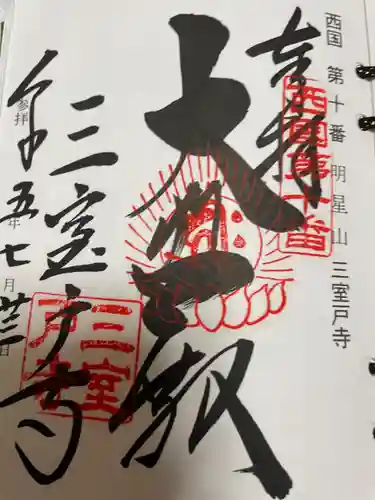 西国 第十番 明星山 三室戸寺
奉拝
西國第十番
大悲殿
三室戸寺
三室戸寺
参拝
令和五年七月廿三日